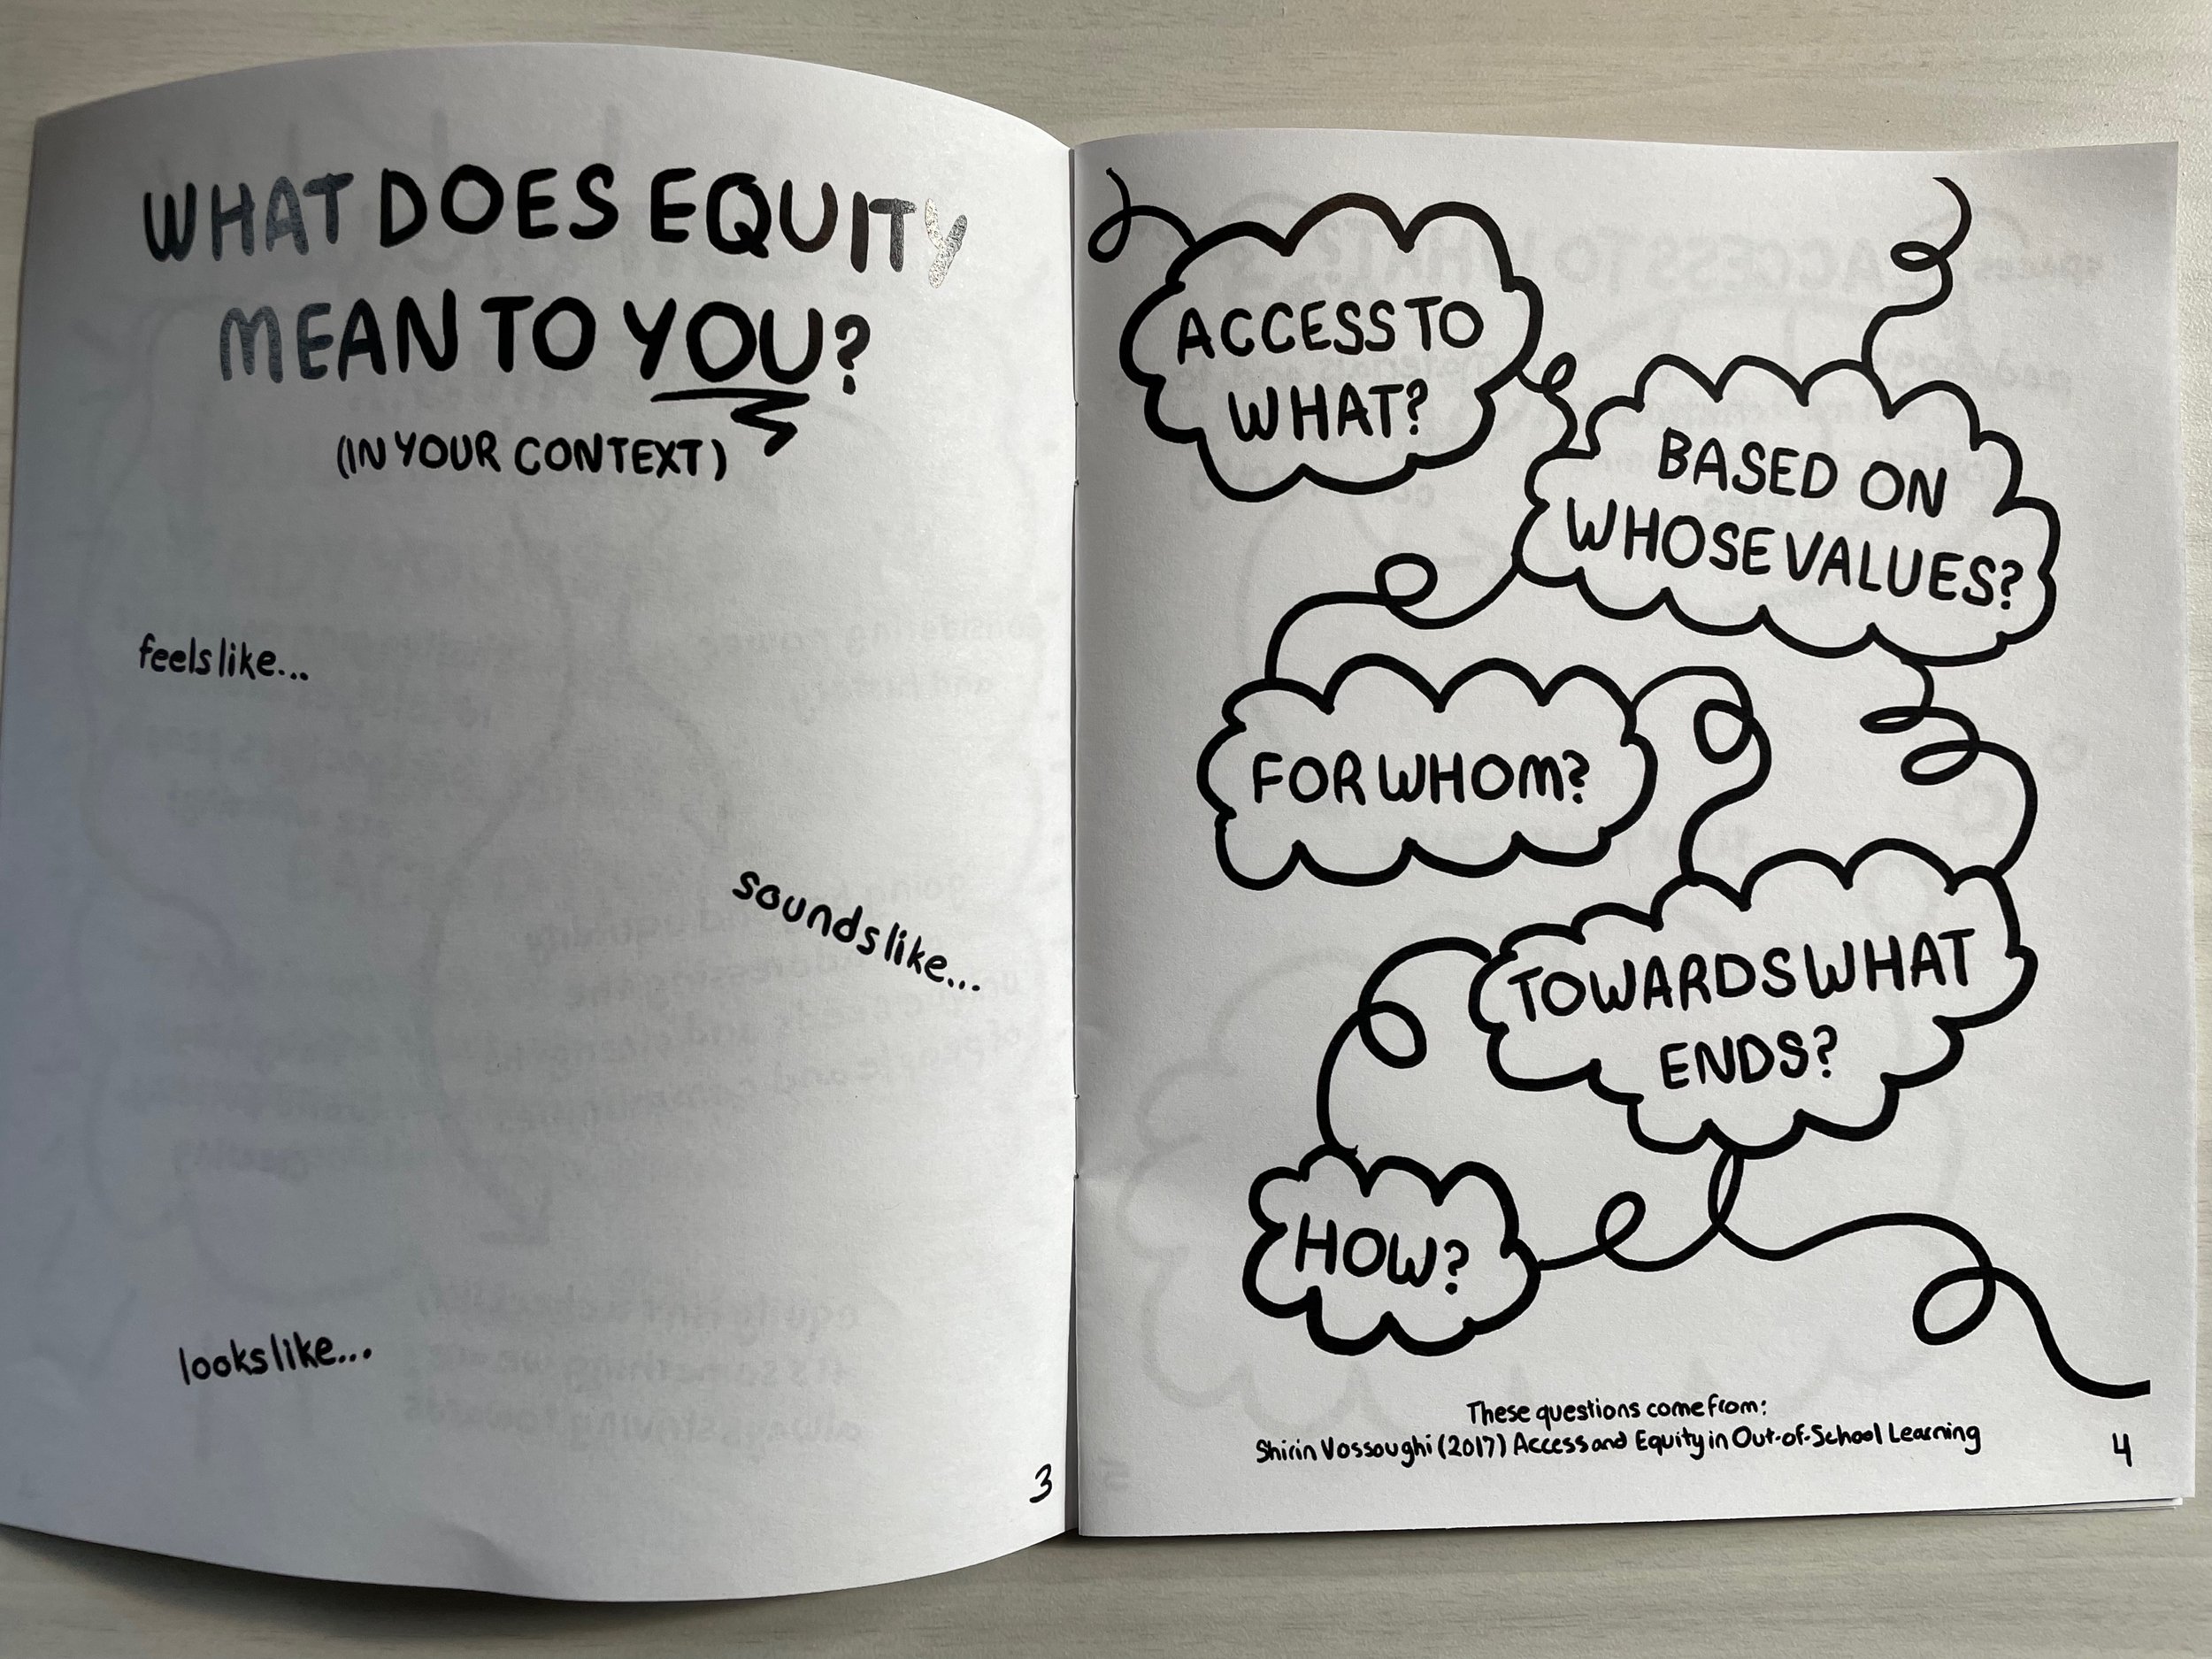 WHAT DOES EQUITY
MEAN TO YOU?
(IN YOUR CONTEXT)
feels like...
sounds like...
looks like...
3
ACCESS TO
WHAT?
BASED ON
WHOSE VALUES?
FOR WHOM?
TOWARDS WHAT
ENDS?
HOW?
These questions come from:
Shirin Vossoughi (2017) Access and Equity in Out-of-School Learning
4